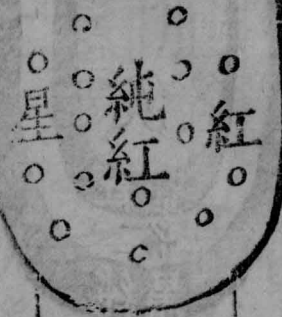 紅
純紅
星